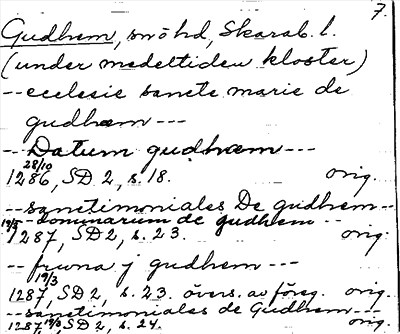 7.
Gudhem, snöhd, Skarab. l.
(under medeltiden kloster)
-- ecclesie sancte marie de
gudhæm ---
-- Datum gudhæm ---
28/10
1286, SD 2, s. 18. orig.
-- sanctimoniales De gudhem --
-- dominarum de gudhem --
19/3
1287, SD 2, s. 23. orig.
-- fruna j gudhem ---
19/3
1287, SD 2, s. 23. övers. av föreg. orig.
-- sanctimoniales de Gudhem ---
1287 19/3 SD 2, s. 24. orig.